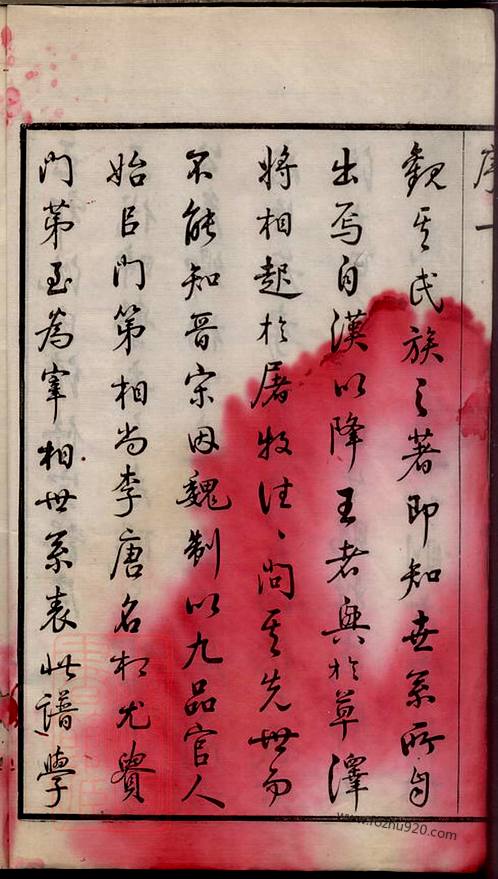 序一
觀其氏族之著即知世系所自
出焉自漢以降王者興於草澤
將相起於屠牧往〻問其先世而
不能知晉宋因魏制以九品官人
始以門第相尚李唐名相尤貴
門第至為宰相世系表此譜學
www.fozhu920.com